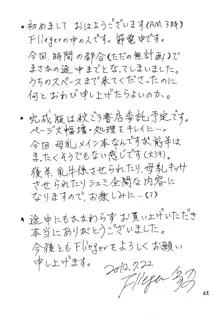 ★初めまして おはようございます(AM.3時)
Fliegerの中の人です。節電中です。
今回、時間の都合(ただの無計画)で
まさかの途中までとなってしまいました。
うちのスペースまで来てくださったのに
何とおわび申し上げたらよいのか。
★完成版は秋ごろ書店委託予定です。
ページ大幅増・処理をキレイに…。
今回母乳メイン本なんですが、前半は
まったくそうでもない感じです(大汗)
後半、乳牛体させられたり、母乳キャッサ
させられたりシュミ全開な内容に
なりますので、お楽しみに…(?)
★途中にもかかわらずお買い上げいただき
本当にありがとうございました。
今後ともFliegerをよろしくお願い
申し上げます。
2012.7.22
Flieger